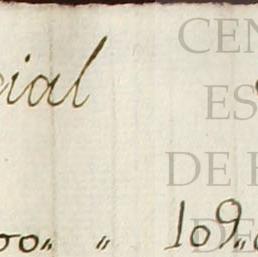 cial
CEN
ES
DE
DE
00,, ,, 109,,